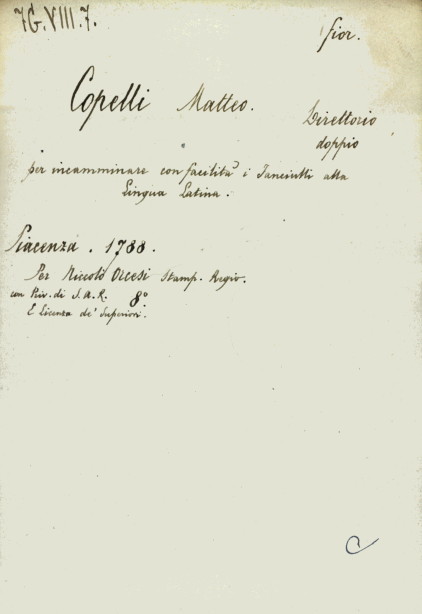 7G.VIII.7.
fior.
Copelli Matteo. Direttorio
doppio
per incamminare con facilità i Fanciulli alla
Lingua Latina.
Piacenza. 1788.
Per Niccolò Orcesi Stamp. Regio.
con Priv. di S.A.R. 8º
E Licenza de' Superiori.